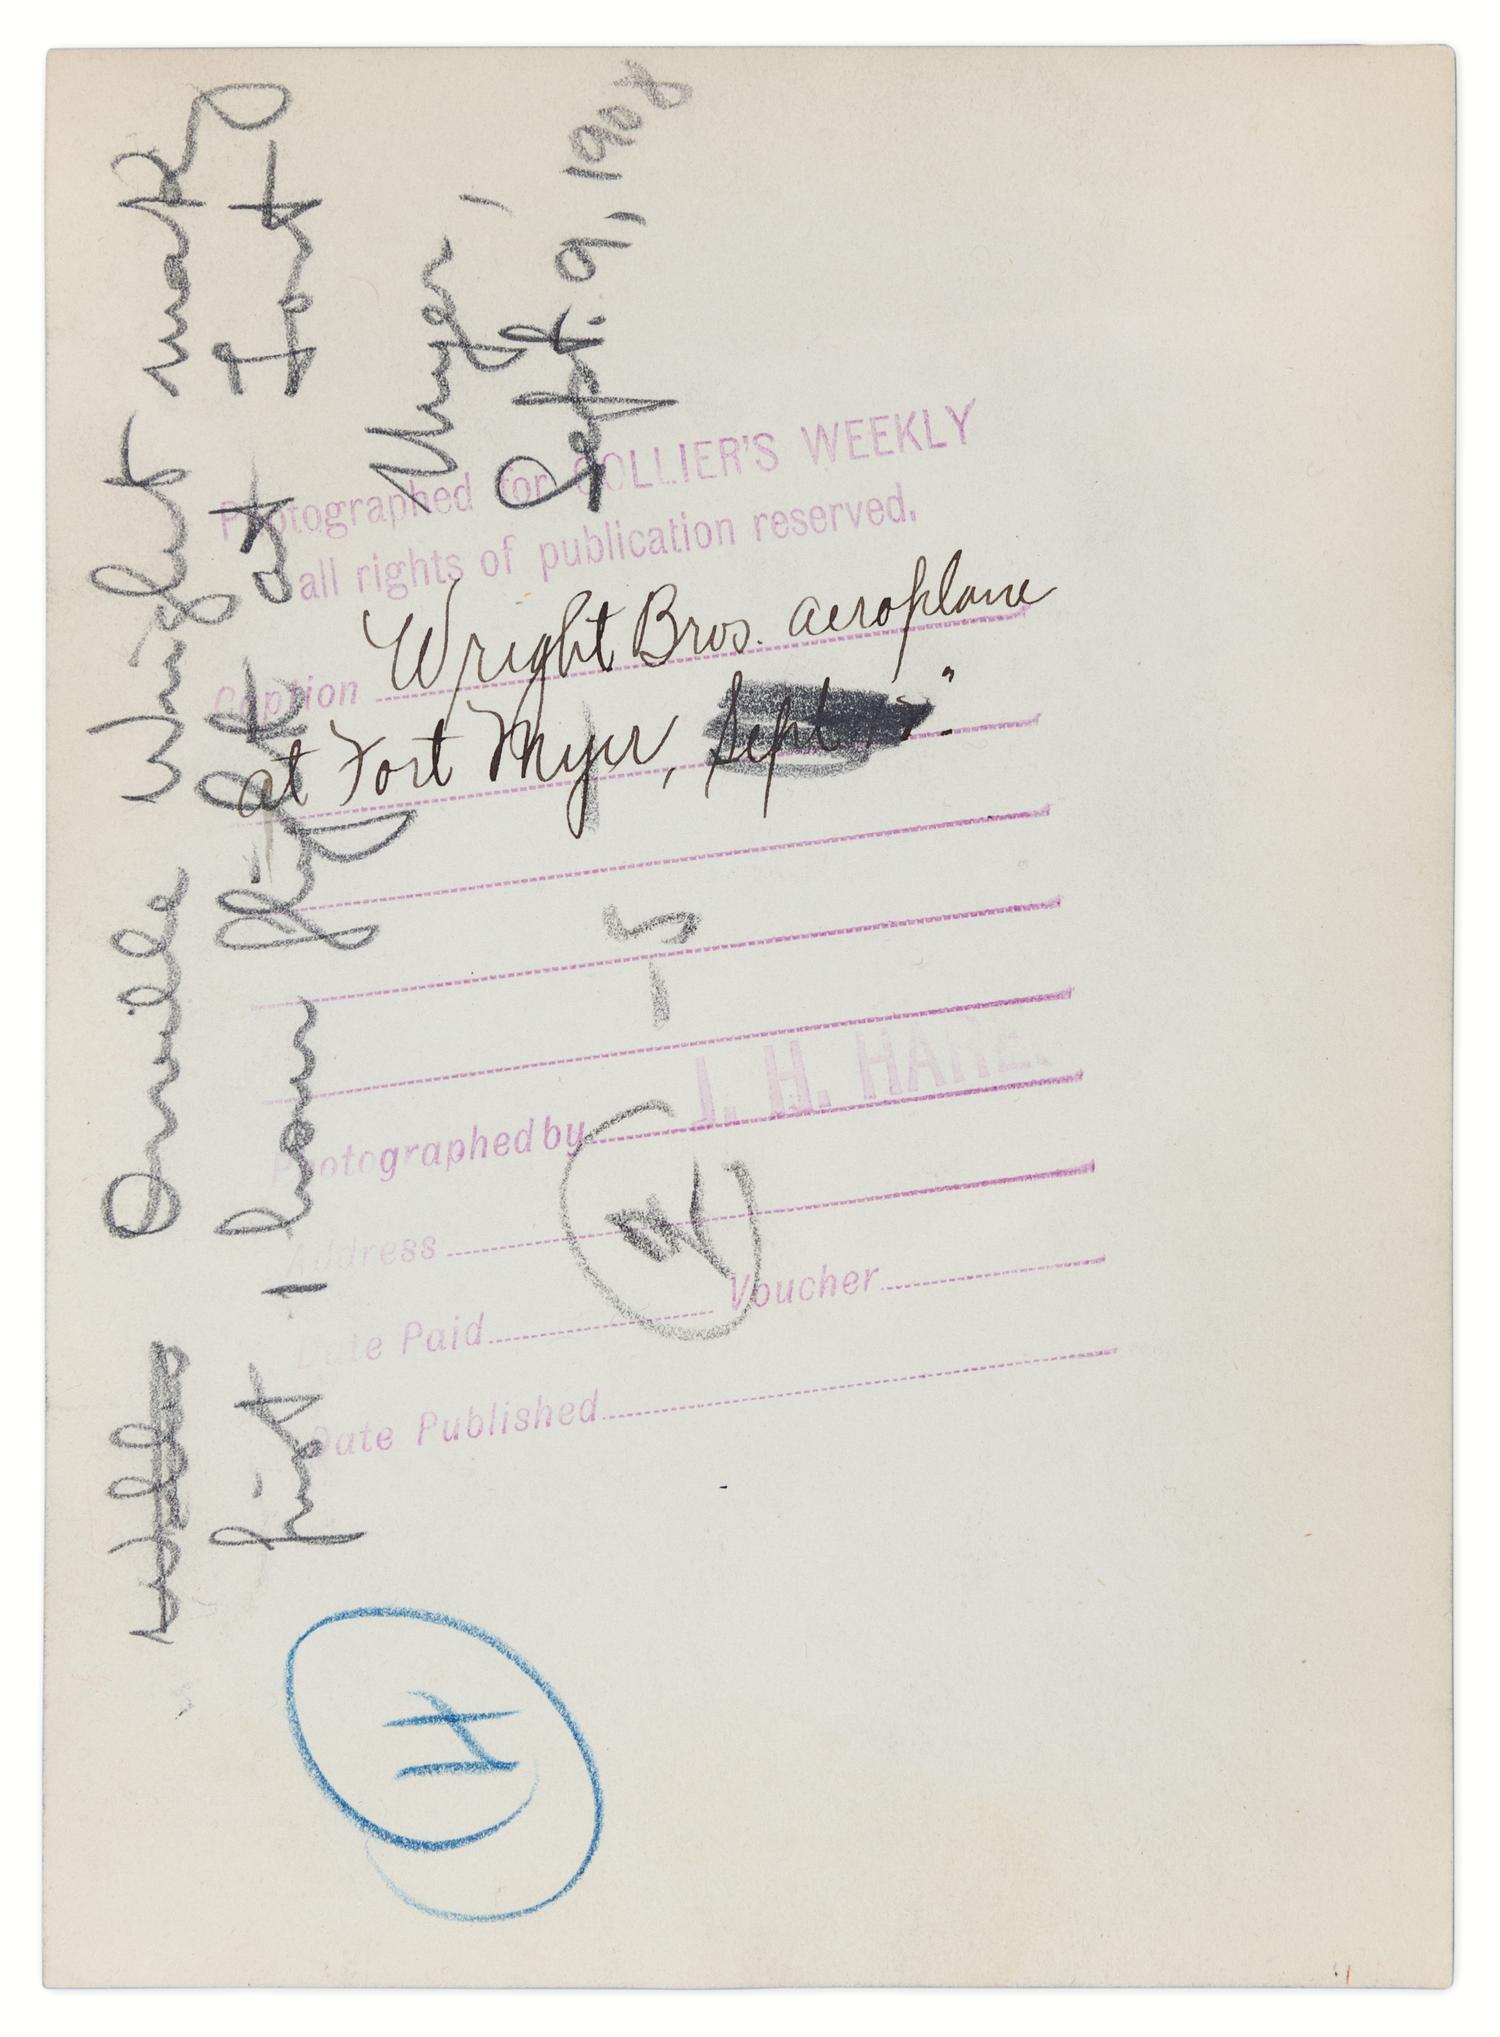 Photographed for COLLIER'S WEEKLY
all rights of publication reserved.
Caption Wright Bros. aeroplane
at Fort Myer, Sept
Photographed by J. H. HARE.
Address
Date Paid Voucher
Date Published
Wilbur Orville Wright makes
first 1 hour flight at Fort
Myer,
Sept. 9, 1908